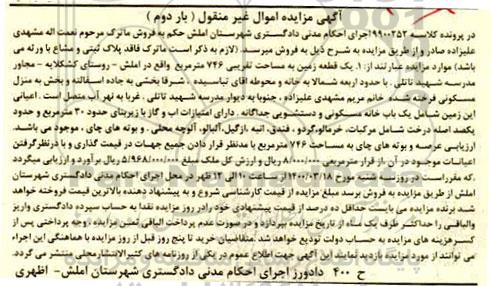 آگهی مزایده اموال غیر منقول ( بار دوم )
در پرونده کلاسه ۹۹۰۰۲۵۲ اجرای احکام مدنی دادگستری شهرستان املش حکم به فروش ماترک مرحوم نعمت اله مشهدی
علیزاده صادر و از طریق مزایده به شرح ذیل به فروش میرسد. (لازم به ذکر است ماترک فاقد پلاک ثبتی و مشاع با ورثه می
باشد) موارد مزایده عبارتند از: ۱. یک قطعه زمین به مساحت تقریبی ۷۴۶ مترمربع واقع در املش - روستای کشکلایه - مجاور
مدرسه شهید تائلی . با حدود اربعه شمالا به خانه و محوطه آقای تباسیده . شرقا بخشی به جاده آسفالته و بخش به منزل
مسکونی فرخته شده. خانم مریم مشهدی علیزاده . جنوبا به دیوار مدرسه شهید تائلی . غربا به نهر آب متصل است. اعیانی
این زمین شامل یک باب خانه مسکونی و دستشویی جداگانه . دارای امتیازات آب و گاز با زیربنای حدود ۳۰ مترمربع و حدود
یکصد اصله درخت شامل مرکبات، خرمالو، گردو ، فندق، انبه ،ازگیل،آلبالو، آلوچه محلی . و بوته های چای ، موجود می باشد.
ارزیابی عرصه و بوته های چای به مساحت ۷۴۶ مترمربع با مدنظر قرار دادن جمیع جهات در قیمت گذاری و با درنظرگرفتن
اعیانات موجود در آن ،از قرار مترمربعی ۸/۰۰۰/۰۰۰ ریال و ارزش کل ملک مبلغ ۵/۹۶۸/۰۰۰/۰۰۰ ریال برآورد و ارزیابی میگردد
.که مقرراست در روز سه شنبه مورخ ۱۴۰۰/۰۳/۱۸ از ساعت ۱۰ الی ۱۲ ظهر در محل اجرای احکام مدنی دادگستری شهرستان
املش از طریق مزایده به فروش برسد مبلغ مزایده از قیمت کارشناسی شروع و به پیشنهاد دهنده بالاترین قیمت فروخته خواهد
شد برنده مزایده می بایست حداقل ده درصد از قیمت پیشنهادی خود را در روز مزایده نقدا به حساب سپرده دادگستری واریز
والباقی را حداکثر ظرف یک ماه از تاریخ مزایده بپردازد و در صورت عدم پرداخت الباقی ثمن مزایده، وجه پرداختی پس از
کسر هزینه های مزایده به حساب دولت تودیع خواهد شد. متقاضیان خرید تا پنج روز قبل از روز مزایده با هماهنگی این اجراء
می توانند از مورد مزایده بازدید نمایند این آگهی جهت اطلاع عموم در یکی از روزنامه های کثیرالانتشار محلی منتشر می گردد.
ح ۴۰۰ دادورز اجرای احکام مدنی دادگستری شهرستان املش- اظهری